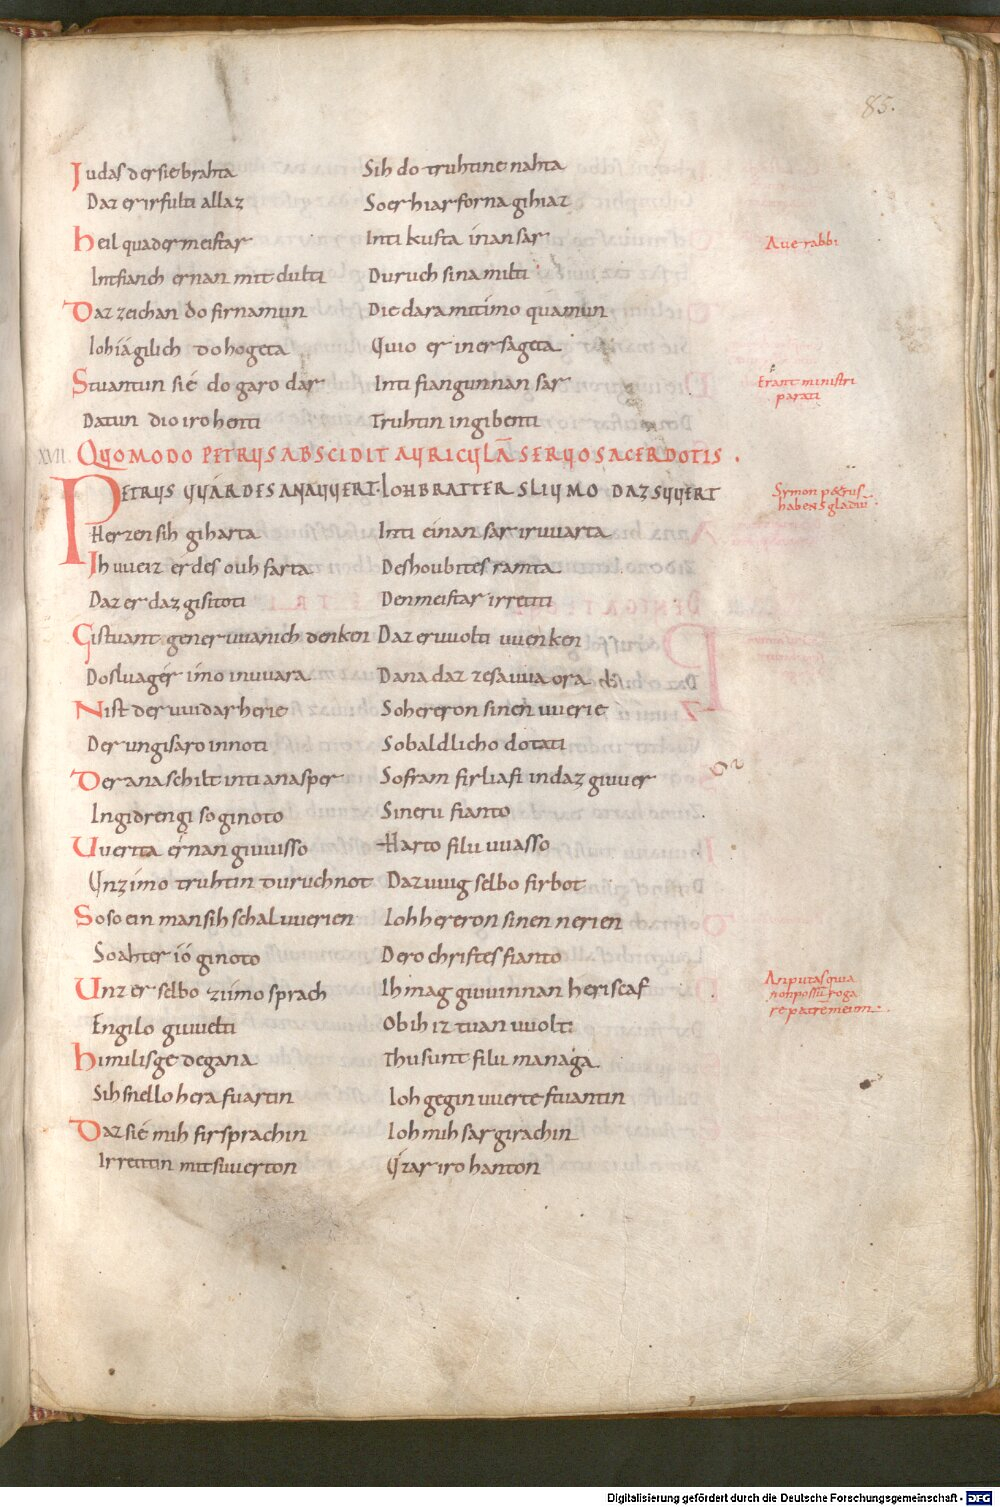 85.
Judas der sie brahta Sih do truhtine nahta
Daz er irfulti allaz So er hiar forna gihiaz
heil quad er meistar Inti kusta inan sar Aue rabbi
Intfianch er nan mit dulti Duruch sina milti
Daz zeichan do firnamun Die dara mit imo quamun
Ioh iágilich do hogeta Quio er in er sageta
Stuantun sié do garo dar Inti fiangun nan sar Erant ministri
parati
Datun dio iro henti Truhtin in gibenti
XVII. QUOMODO PETRUS ABSCIDIT AURICULĀ SERUO SACERDOTIS .
PETRUS UUARD ES ANAUUERT. IOH BRATTER SLIUMO DAZ SUUERT Symon petrus
habens gladiū.
Herzen sih gi harta Inti einan sar iruuarta
Ih uueiz er des ouh farta Des houbites ramta
Daz er daz gisitoti Den meistar irretiti
Gistuant gener uuanich denken Daz er uuolti uuenken
Do sluag ér imo in uuara Dana daz zesauua ora
Nist der uuidar herie So hereron sinen uuerie
Der ungisaro in noti So baldlicho dotati
Der ana schilt inti ana sper So fram firliafi in daz giuuer
In gidrengi so ginoto Sineru fianto
Uuerita ér nan giuuisso Harto filu uuasso
Unz imo truhtin duruch not Daz uuig selbo firbot
Soso ein man sih schal uuerien Ioh hereron sinen nerien
So ahter ió ginoto Dero christes fianto
Unz er selbo zi imo sprach Ih mag giuuinnan heriscaf An putas quia
non possū roga
re patrem meum.
Engilo giuuelti Ob ih iz tuan uuolti
himilisge degana Thusunt filu managa
Sih snello hera fuartin Ioh gegin uuerte stuantin
Daz sié mih firsprachin Ioh mih sar girachin
Irretitin mit suuerton Uzar iro hanton
Digitalisierung gefördert durch die Deutsche Forschungsgemeinschaft - DFG